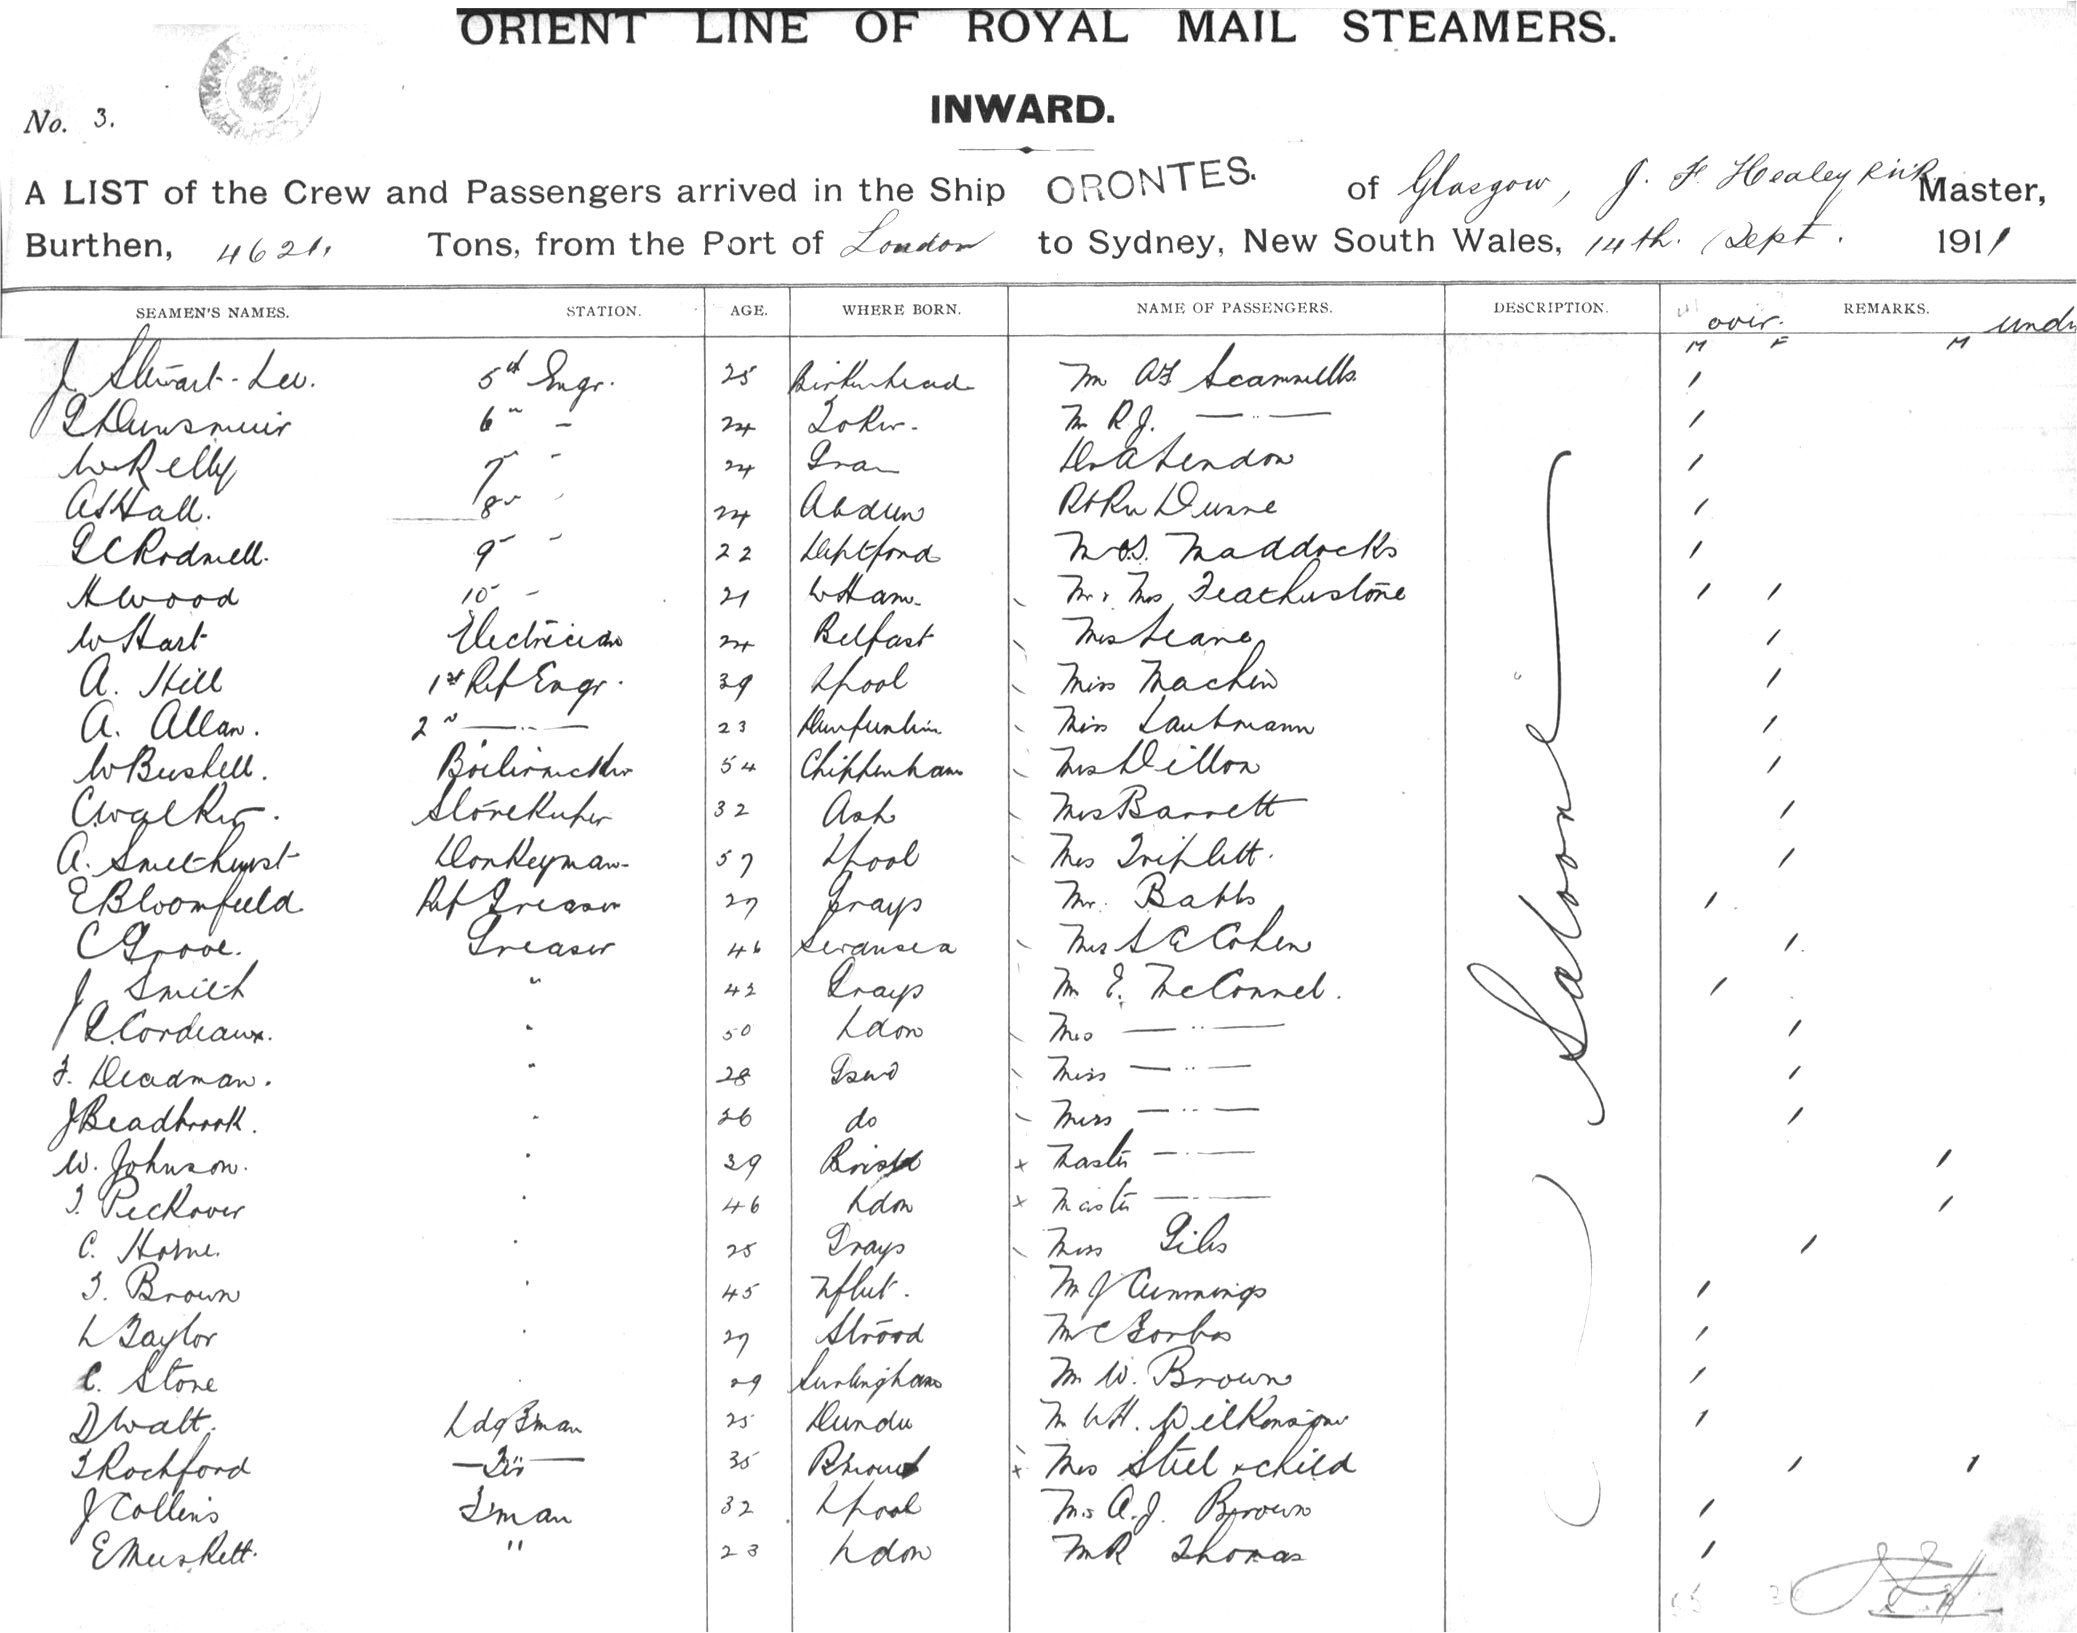 ORIENT LINE OF ROYAL MAIL STEAMERS.
INWARD.
No. 3.
A LIST of the Crew and Passengers arrived in the Ship ORONTES. of Glasgow, J. F. Healey R.N.R. Master,
Burthen, 4621, Tons, from the Port of London to Sydney, New South Wales, 14th. Sept. 1911
SEAMEN'S NAMES. STATION. AGE. WHERE BORN. NAME OF PASSENGERS. DESCRIPTION. REMARKS.
over. und
M F M
J. Stewart-Lee. 5th Engr. 25 Birkenhead M
6 " – 24 M R.J. — " —
W Kelly 7 " " 24
A Hall. 8 " " 24 Dunne
Rodwell. 9 " " 22 Deptford M Maddocks
H Wood 10 " – 21 W Ham. Mr & Mrs Featherstone
W Hart Electrician 24 Belfast Mrs Leane
A. Hill 1st Ref Engr. 39 Lpool Miss Machin
A. Allan. 2 " — " — 23 Miss Lautmann
W Bushell. Boilermaker 54 Chippenham Mrs Dillon
C Walker. Storekeeper 32 Ash Mrs Barrett
A. Smethurst Donkeyman 57 Lpool Mrs Triplett.
E Bloomfield Ref Greaser 27 Grays Mr. Babbs
C Grove. Greaser 46 Swansea Mrs Cohen
J Smith " 42 Grays M. E. McConnel.
Cordeaux. " 50 Ldon Mrs — " —
F. Deadman. " 28 Miss — " —
J Beadbrook. " 26 do Miss — " —
W. Johnson. " 39 Bristol Master — " —
T. Peckover " 46 Ldon Master — " —
C. Horne. " 25 Grays Miss Giles
T. Brown " 45 Nfleet. M J Cummings
L Taylor " 27 Strood M C
C. Stone " 29 Surlingham M W. Brown
D Watt. Ldg F'man 25 Dundee M W H. Wilkinson
T Rochford — " — 35 Mrs Steel & child
J Collins F'man 32 Lpool A.J. Brown
E Muskett. " 23 Ldon M R Thomas
Saloone